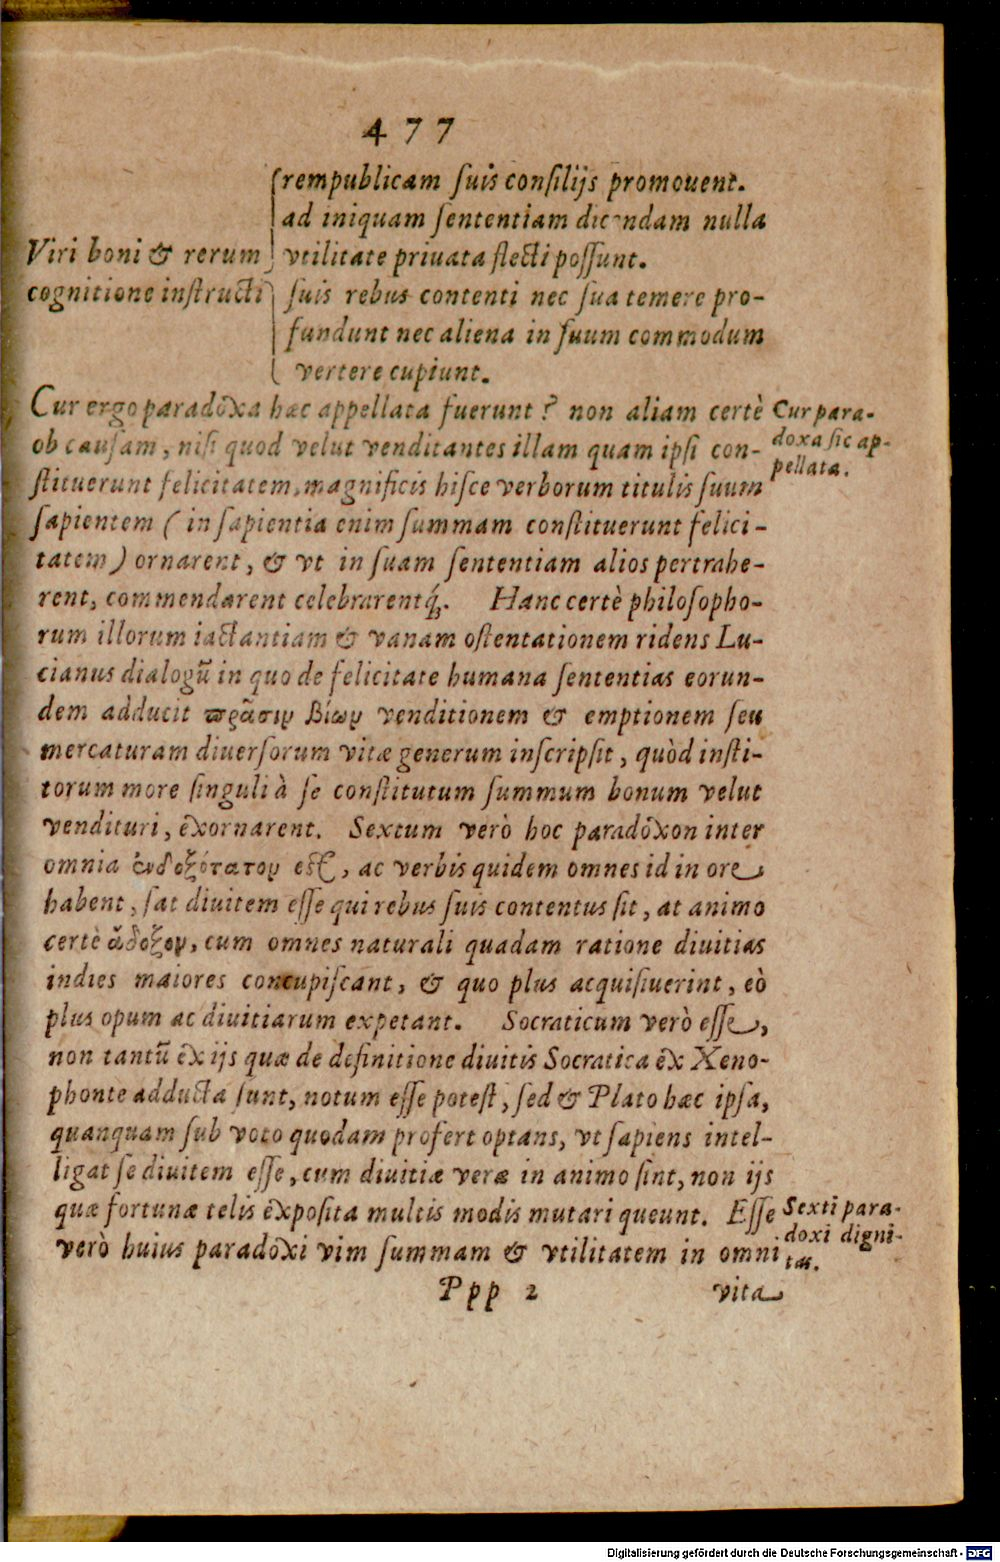 477
rempublicam ſuis conſilijs promouent.
ad iniquam ſententiam dicendam nulla
Viri boni & rerum vtilitate priuata flecti poſſunt.
cognitione inſtructi ſuis rebus contenti nec ſua temere pro-
fundunt nec aliena in ſuum commodum
vertere cupiunt.
Cur ergo paradoxa hæc appellata fuerunt? non aliam certè
Cur para-
ob cauſam, niſi quod velut venditantes illam quam ipſi con-
doxa ſic ap-
ſtituerunt felicitatem, magnificis hiſce verborum titulis ſuum
pellata.
ſapientem (in ſapientia enim ſummam conſtituerunt felici-
tatem) ornarent, & vt in ſuam ſententiam alios pertrahe-
rent, commendarent celebrarentq́;. Hanc certè philoſopho-
rum illorum iactantiam & vanam oſtentationem ridens Lu-
cianus dialogũ in quo de felicitate humana ſententias eorun-
dem adducit πρᾶσιν βίων venditionem & emptionem ſeu
mercaturam diuerſorum vitæ generum inſcripſit, quòd inſti-
torum more ſinguli à ſe conſtitutum ſummum bonum velut
vendituri, exornarent. Sextum verò hoc paradoxon inter
omnia ἐνδοξότατον est, ac verbis quidem omnes id in ore
habent, ſat diuitem eſſe qui rebus ſuis contentus ſit, at animo
certè ἄδοξον, cum omnes naturali quadam ratione diuitias
indies maiores concupiſcant, & quo plus acquiſiuerint, eò
plus opum ac diuitiarum expetant. Socraticum verò eſſe,
non tantũ ex ijs quæ de definitione diuitis Socratica ex Xeno-
phonte adducta ſunt, notum eſſe poteſt, ſed & Plato hæc ipſa,
quanquam ſub voto quodam profert optans, vt ſapiens intel-
ligat ſe diuitem eſſe, cum diuitiæ veræ in animo ſint, non ijs
quæ fortunæ telis expoſita multis modis mutari queunt. Eſſe
Sexti para-
verò huius paradoxi vim ſummam & vtilitatem in omni
doxi digni-
tas.
Ppp 2 vita
Digitalisierung gefördert durch die Deutsche Forschungsgemeinschaft - DFG